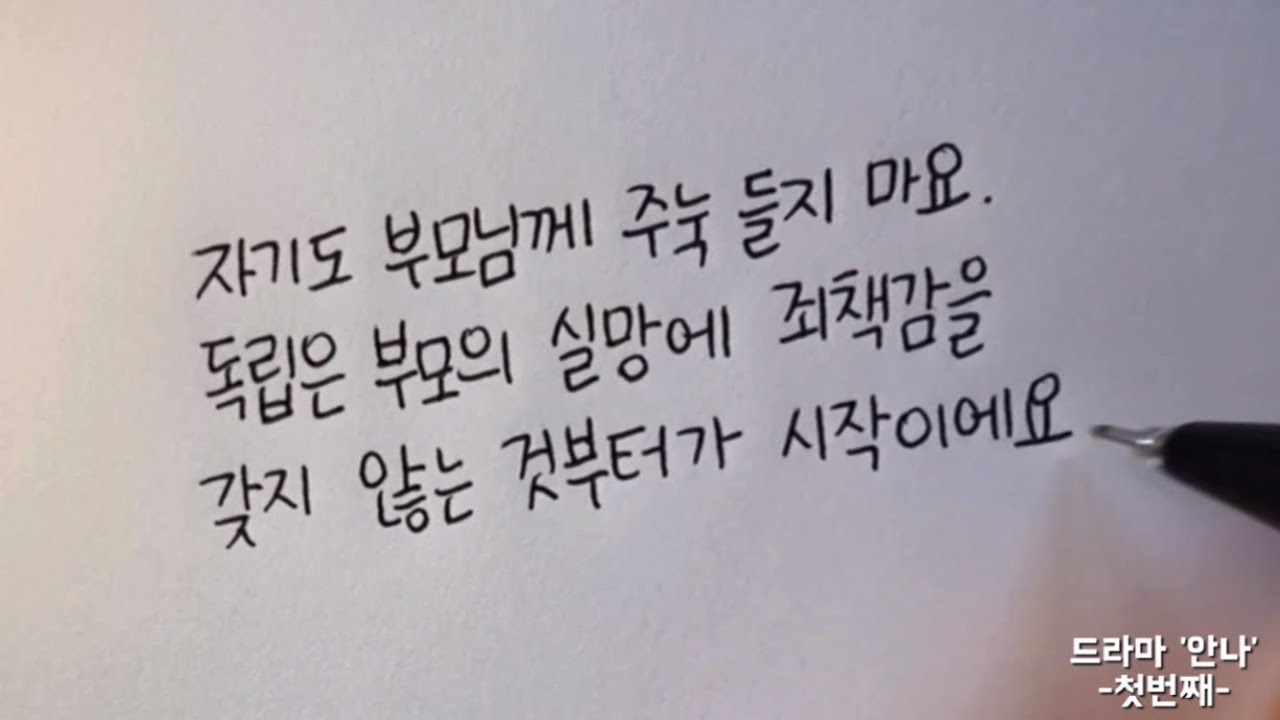 자기도 부모님께 주눅 들지 마요.
독립은 부모의 실망에 죄책감을
갖지 않는 것부터가 시작이에요
드라마 '안나'
-첫번째-